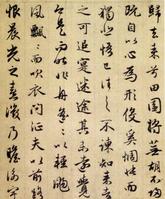 歸去来兮田園將蕪胡不歸
既自以心為形役奚惆悵而
獨悲悟已往之不諫知来者
之可追寔迷途其未遠覺
今是而昨非舟遥遥以輕颺
風飄飄而吹衣問征夫以前路
恨晨光之熹微乃瞻衡宇